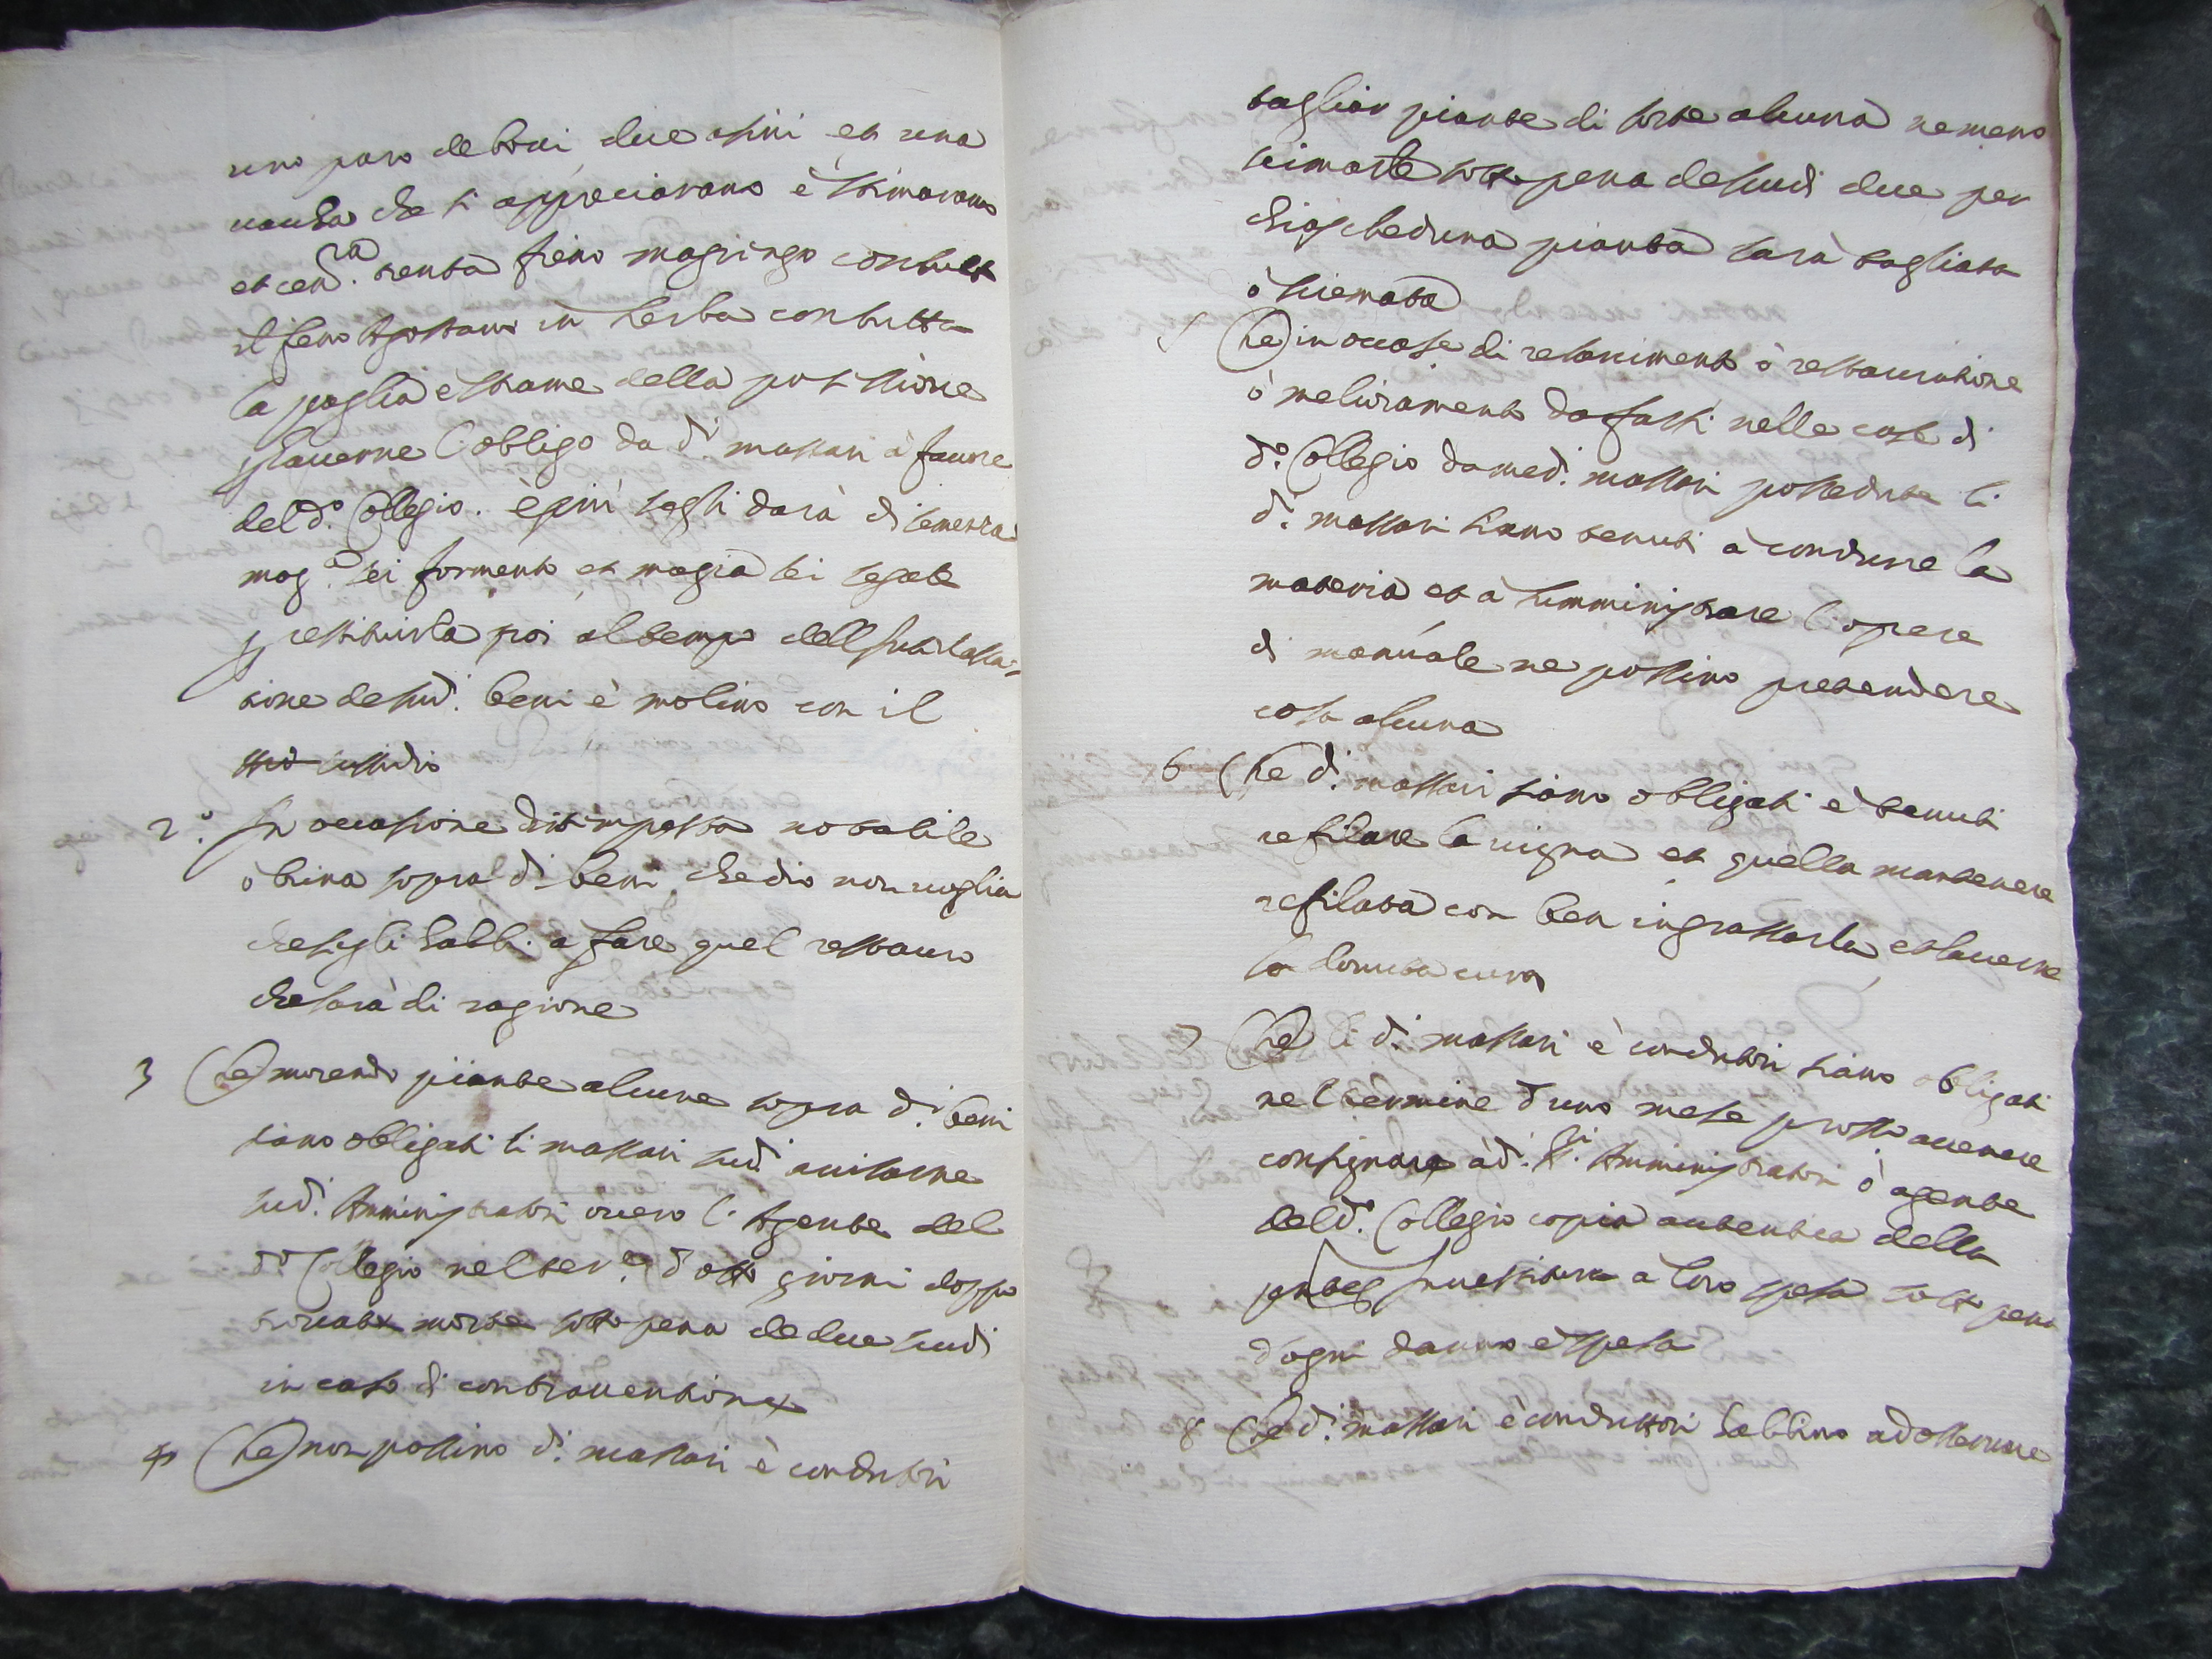 uno paro de bovi due asini et una
vacha che si appreciarano è stimarano
et cen.ra tenta fieno magingo con tutt
il feno Agostano in herba con tutta
la paglia e strame della possessione
p hauerne l'obligo da d.i massari à fauore
del d.o Collegio. è più segli darà di semenza
mog.a sei formento et mogia sei segale
p restituirla poi al tempo dell sua rilassa=
tione de sud.i beni è molino con il
sussidio
2.o In occasione di tempesta notabile
ò brina sopra d.i beni che dio non voglia
che segli habbi a fare quel restauro
che sarà di ragione
3 Che morendo piante alcune sopra d.i beni
siano obligati li massari sud.i auisarne
sud.i Amministratori overo l'Agente del
d.o Collegio nel ter.e d'otto giorni doppo
trovate morte sotto pena de due scudi
in caso di contrauentione
4 Che non possino d.i massari è conduttori
tagliar piante di sorte alcuna nemeno
scimarle sotto pena de scudi due per
chiascheduna pianta sarà tagliata
ò sciemata
5 Che in occase di refacimento ò restauratione
ò melioramento da farsi nelle case di
d.o Collegio da med.i massari possedute li
d.i massari siano tenuti à condurre la
materia et à sumministrare l'opera
di manuale ne possino pretendere
cosa alcuna
6 Che d.i massari siano obligati è tenuti
refilare la vigna et quella mantenere
refilata con ben ingrassarla et hauerne
la douuta cura
7 Che li d.i massari è conduttori siano obligati
nel termine d'uno mese prossimo auenire
consignare à d.i SS.ri Amministratori ò agente
del d.o Collegio copia autentica della
pnte Inuestitura a loro spesa sotto pena
d'ogni danno è spesa
8 Che d.i massari è conduttori habbino ad osseruare